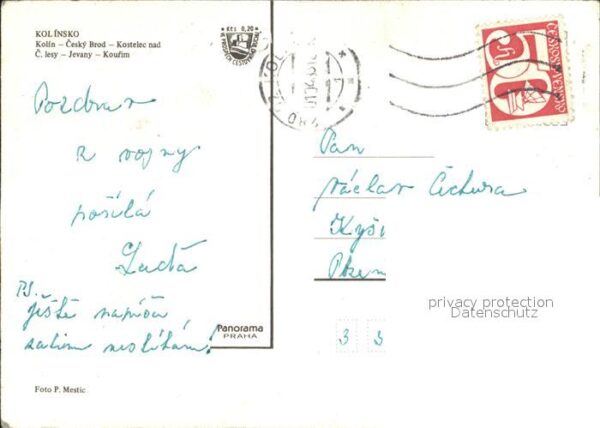 KOLÍNSKO
Kolín – Český Brod – Kostelec nad
Č. lesy – Jevany – Kouřim
Kčs 0,20
Pozdrav
z vojny
posílá
Laďa
P.S.
Ještě napíšu
zatím neslíbám!
Foto P. Mestic
Panorama
PRAHA
ČESKOSLOVENSKO
50
Pan
Václav Cichura
Kyši
Plzeň
3 3
privacy protection
Datenschutz